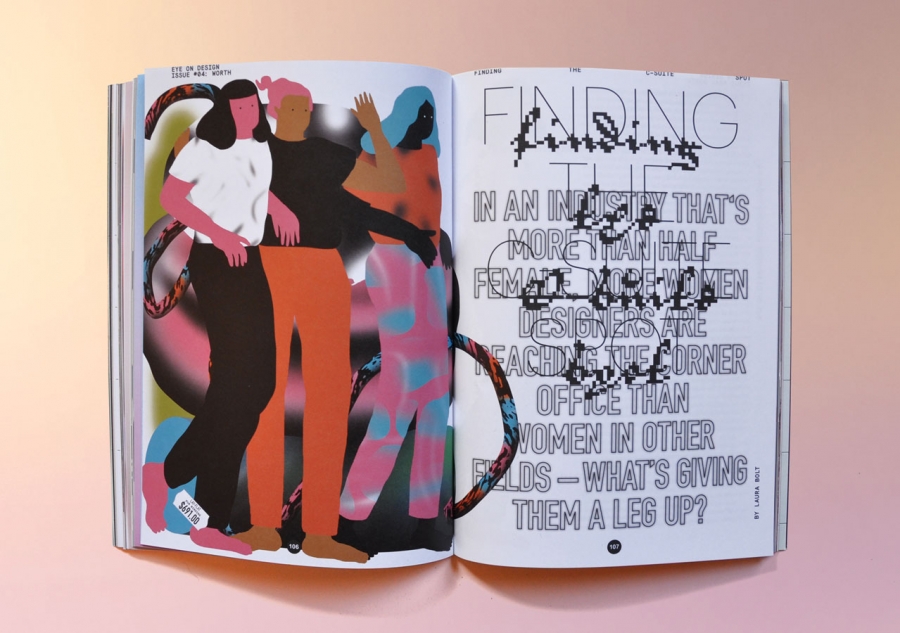 EYE ON DESIGN
ISSUE #04: WORTH
$691.00
106
FINDING THE C-SUITE SPOT
FINDING
finding
THE
the
C-SUITE
c-suite
SPOT
spot
IN AN INDUSTRY THAT'S
MORE THAN HALF
FEMALE, MORE WOMEN
DESIGNERS ARE
REACHING THE CORNER
OFFICE THAN
WOMEN IN OTHER
FIELDS — WHAT'S GIVING
THEM A LEG UP?
BY LAURA BOLT
107